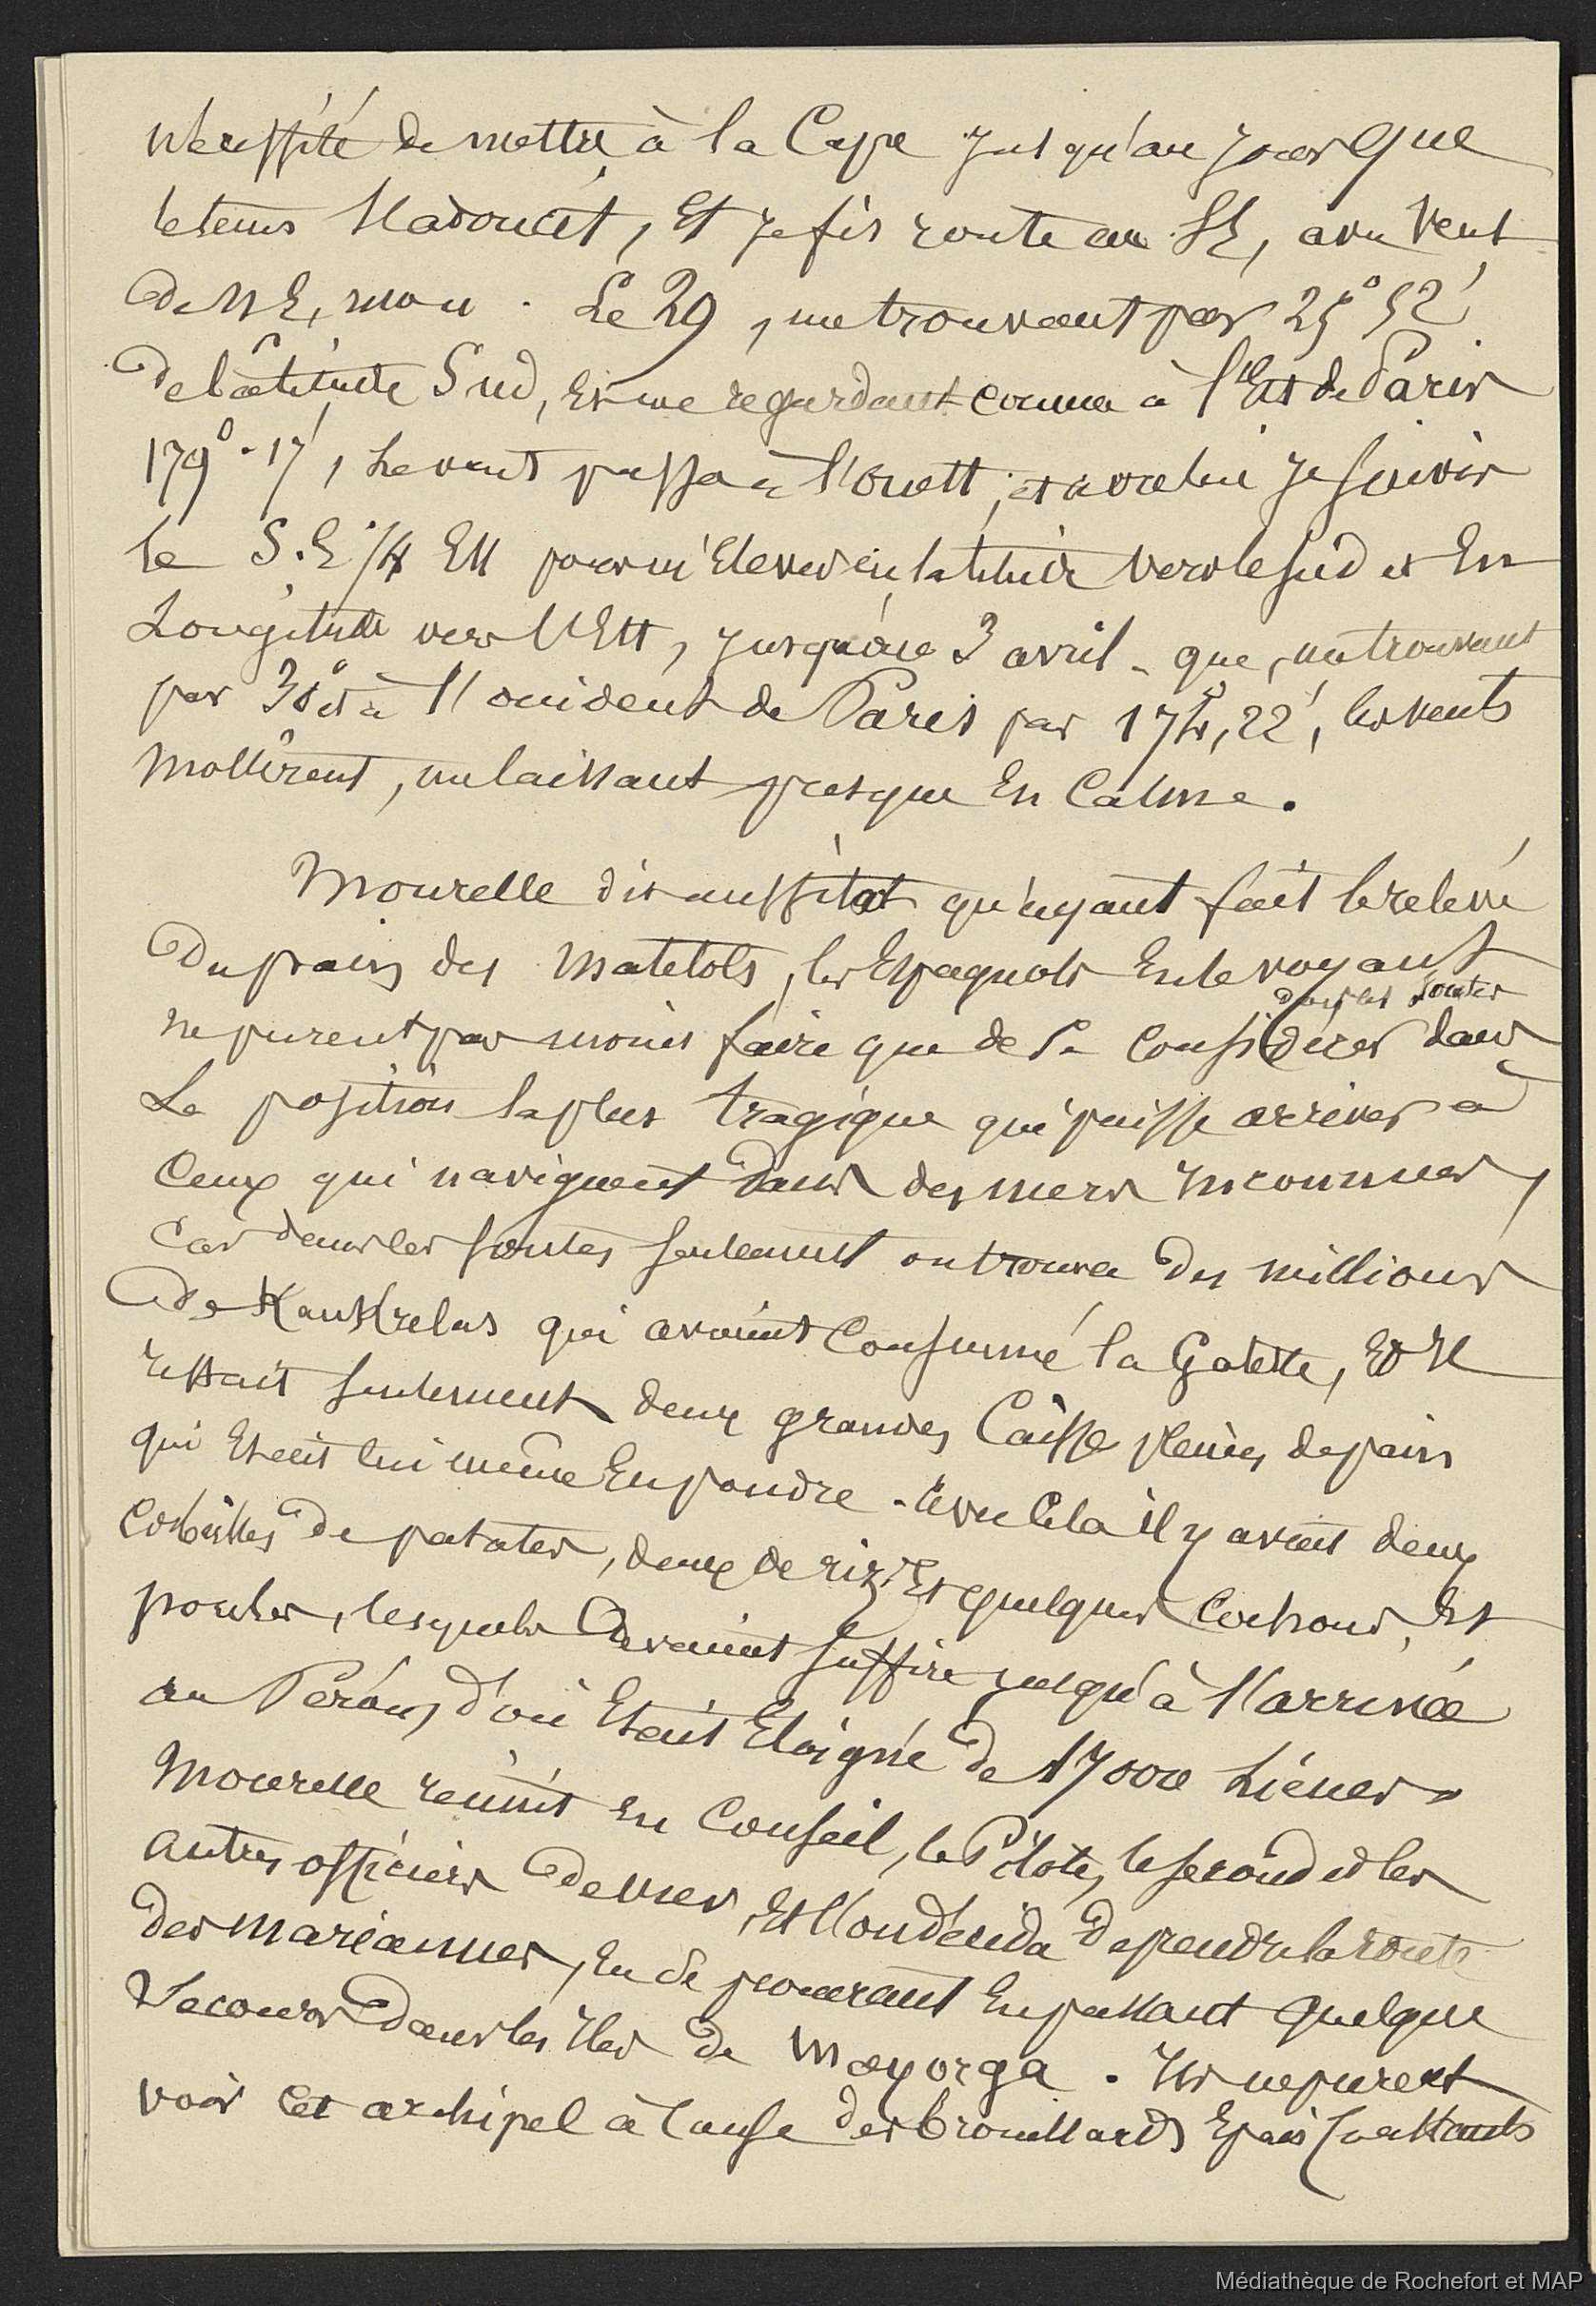 nécessité de mettre à la Cape jusqu'au jour que
le tems s'adoucit, Et je fis route au SE, avec vent
de NE, mou. Le 29, me trouvant par 25° 52'
De latitude Sud, Et me regardant comme à l'Est de Paris
179°.17', le vent passa à l'ouest, et avec lui je suivis
le S.E 1/4 Est pour m'Elever en latitude vers le sud et En
Longitude vers l'Est, jusqu'au 3 avril - que, me trouvant
par 30° et à l'occident de Paris par 174°, 22', les vents
mollirent, me laissant presque En Calme.
Mourelle dit aussitot qu'ayant fait le relevé
Du pain des Matelots, les Espagnols En le voyant
dans les soutes
ne purent pas moins faire que de se Considérer dans
La position la plus tragique qui puisse arriver à
Ceux qui naviguent dans des mers Inconnues,
Car dans les soutes seulement on trouva Des millions
De Kankrelas qui avaient Consumé la Galette, Et Il
restait seulement deux grandes Caisse pleines de pain
qui Etait lui même En poudre. Avec Cela il y avait deux
Corbeilles de patates, deux de riz, Et quelques Cochons, Et
poules, lesquels Devaient suffire jusqu'à l'arrivée
au Pérou, d'où Etait Eloigné de 17000 Liéues.
Mourelle réunit En Conseil, le Pilote, le second et les
autres officiers De mer, Et l'on décida de prendre la route
Des Mariannes, En se procurant En passant quelque
Secours Dans les Iles de Mayorga. Ils ne purent
voir Cet archipel à Cause des brouillards Epais